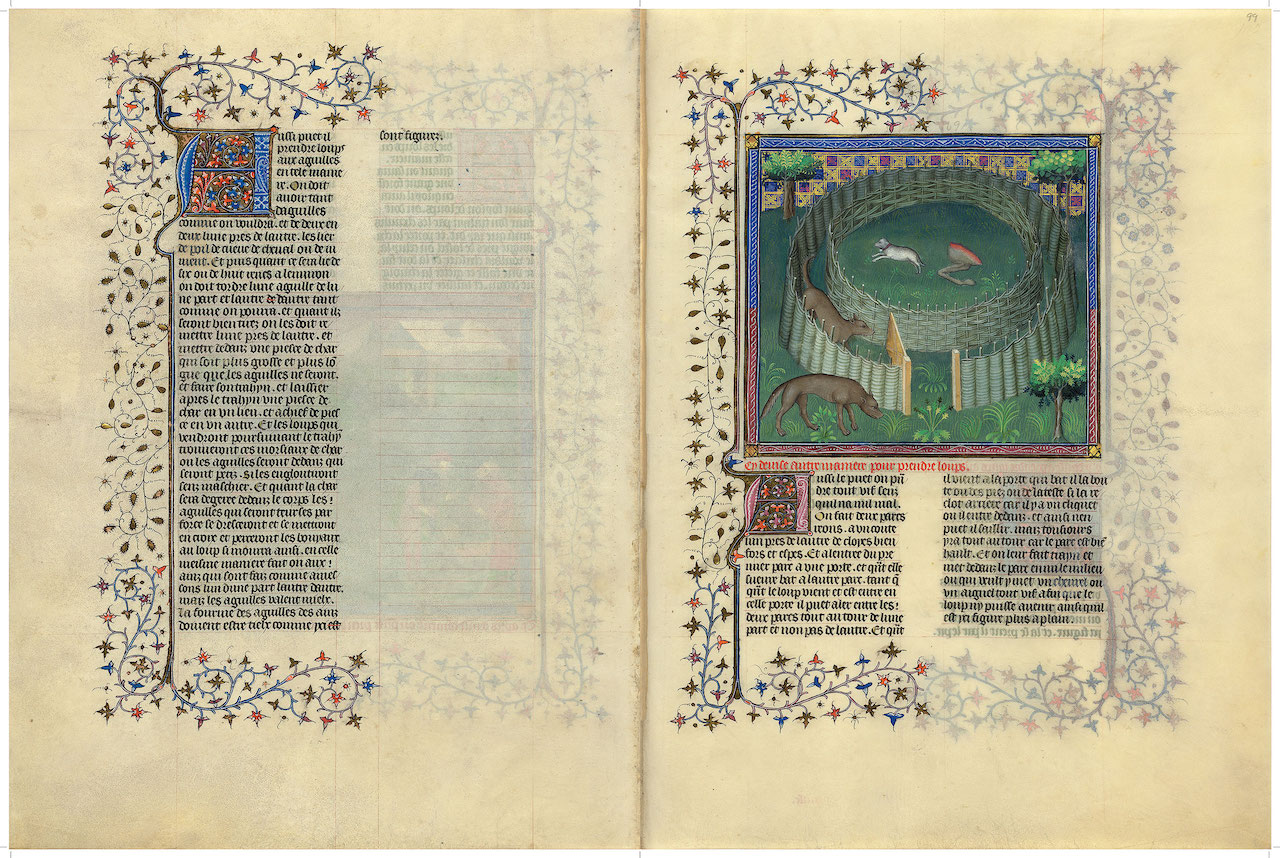 Aussi puet il
prendre loups
aux aguilles
en tele manie
re. On doit
auoir tant
daguilles
comme on vouldra. et de deux en
deux lune pres de lautre. les lier
de poil de cueue de cheual ou de iu
ment. Et puis quant ce sera lie de
six ou de huit tenes a lenuiron
on doit tordre lune aguille de lu
ne part et lautre de lautre tant
comme on pourra. et quant ilz
seront bien turz on les doit re
mettre lune pres de lautre. et
mettre dedanz une piesce de char
qui soit plus grosse et plus lon
gue que les aguilles ne seront.
et faire son trahyn. et laissier
apres le trahyn une piesce de
char en un lieu. et a chief de pies
ce en un autre. Et les loups qui
vendront poursuiuant le trahyn
trouueront ces morsiaux de char
ou les aguilles seront dedanz qui
seront petiz. Si les engloutiront
senz maschier. Et quant la char
sera degeree dedanz le corps les
aguilles qui seront teurses par
force se dresceront et se mettront
en croix et perceront les bouyaux
au loup si mourra ainsi. en celle
meisme maniere fait on aux
ainz qui sont faiz comme ames
cons lun dune part lautre dautre.
maiz les aguilles valent mielx.
la fourme des aguilles des ainz
doiuent estre tielx comme yci est
sont figurez.
99
Cy deuise autre maniere pour prendre loups.
Aussi le puet on pren
dre tout vif senz
quil na mil mal.
On fait deux parcs
reons. a un coute
lun pres de lautre de cloyes bien
fors et espes. Et a lentree du pre
mier parc a une porte. et quant elle
sueure bat a lautre parc. tant que
quant le loup vient et est entre en
celle porte il puet aler entre les
deux parcs tout au tour de lune
part et non pas de lautre. Et quant
il vient a la porte qui bat il la bou
te ou des piez ou de la teste si la re
clot arriere car il y a un cliquet
ou il entre dedanz. et ainsi nen
puet il saillir. maiz tousiours
yra tout au tour car le parc est bien
hault. Et on leur fait trayn et
met dedanz le parc enmi le milieu
ou qui veult y met un cheurel ou
un aignel tout vif a fin que le
loup ny puisse auenir ainsi quil
est yci figure plus a plain.